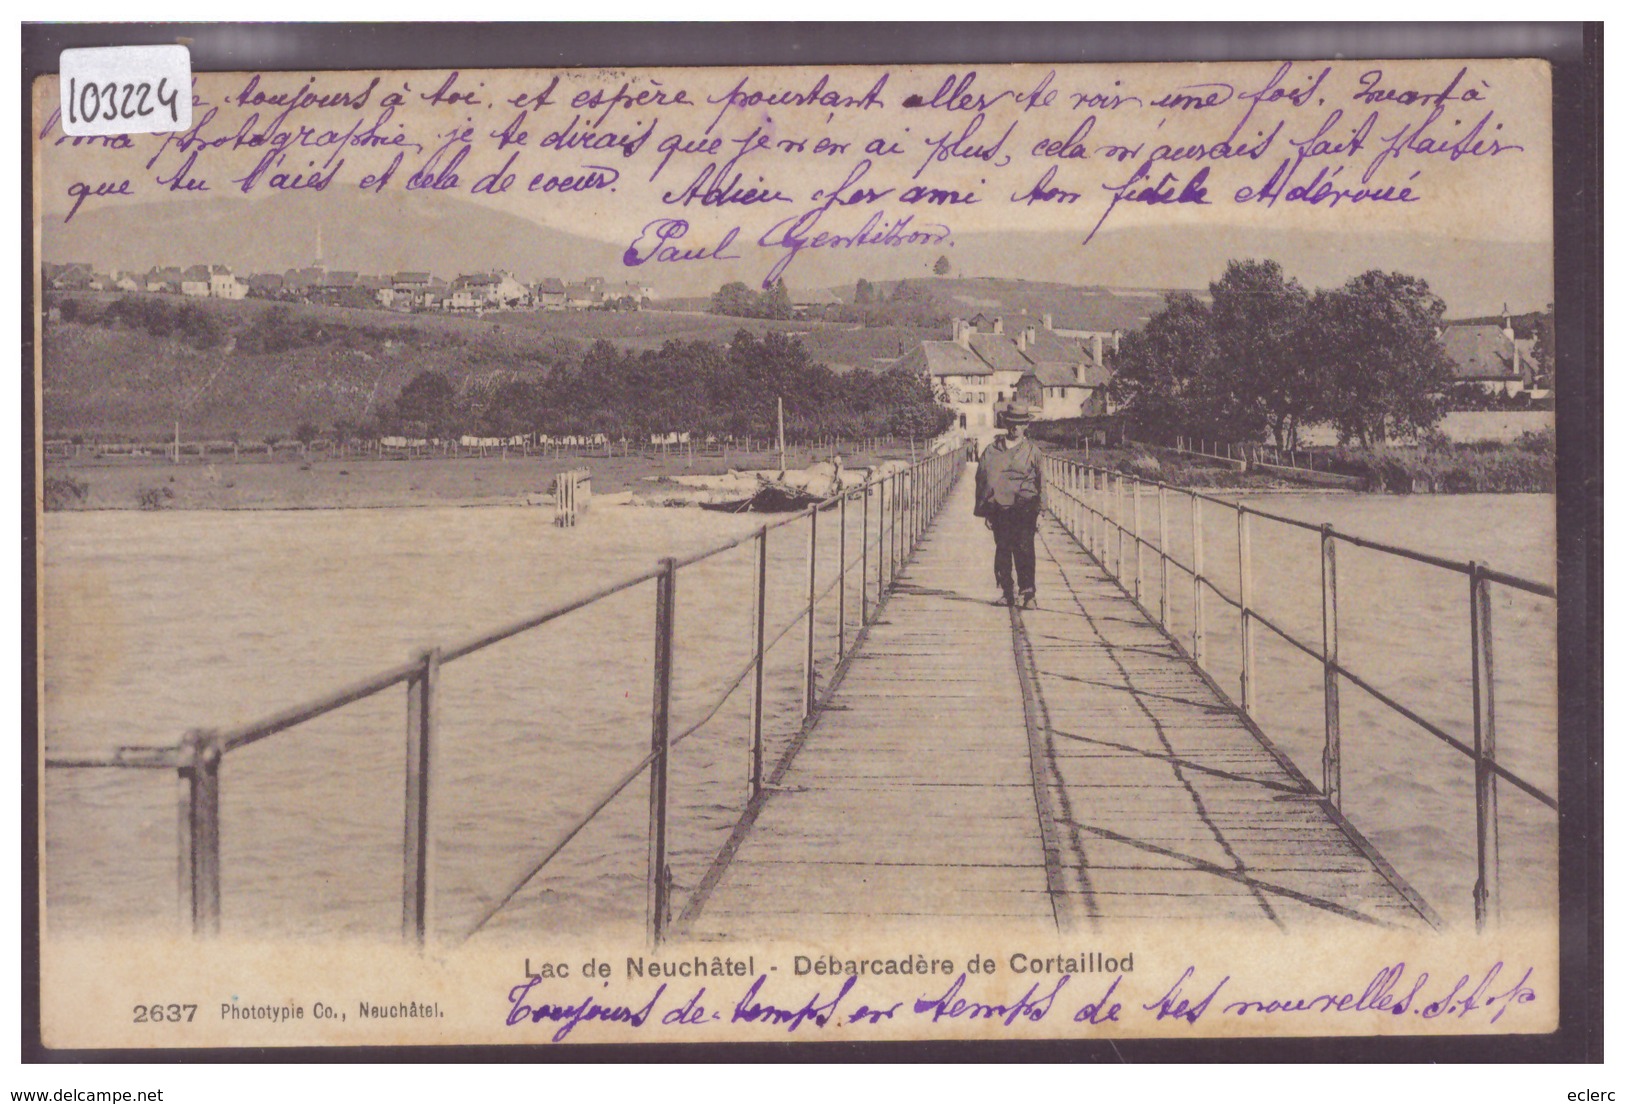 103224
toujours à toi. et espère pourtant aller te voir une fois. Quant à
ma photographie, je te dirais que je n'en ai plus, cela m'aurais fait plaisir
que tu l'aies et cela de coeur. Adieu cher ami ton fidèle et dévoué
Paul Gentizon.
Lac de Neuchâtel - Débarcadère de Cortaillod
2637 Phototypie Co., Neuchâtel.
Toujours de temps en temps de tes nouvelles. s.t.p
www.delcampe.net
eclerc